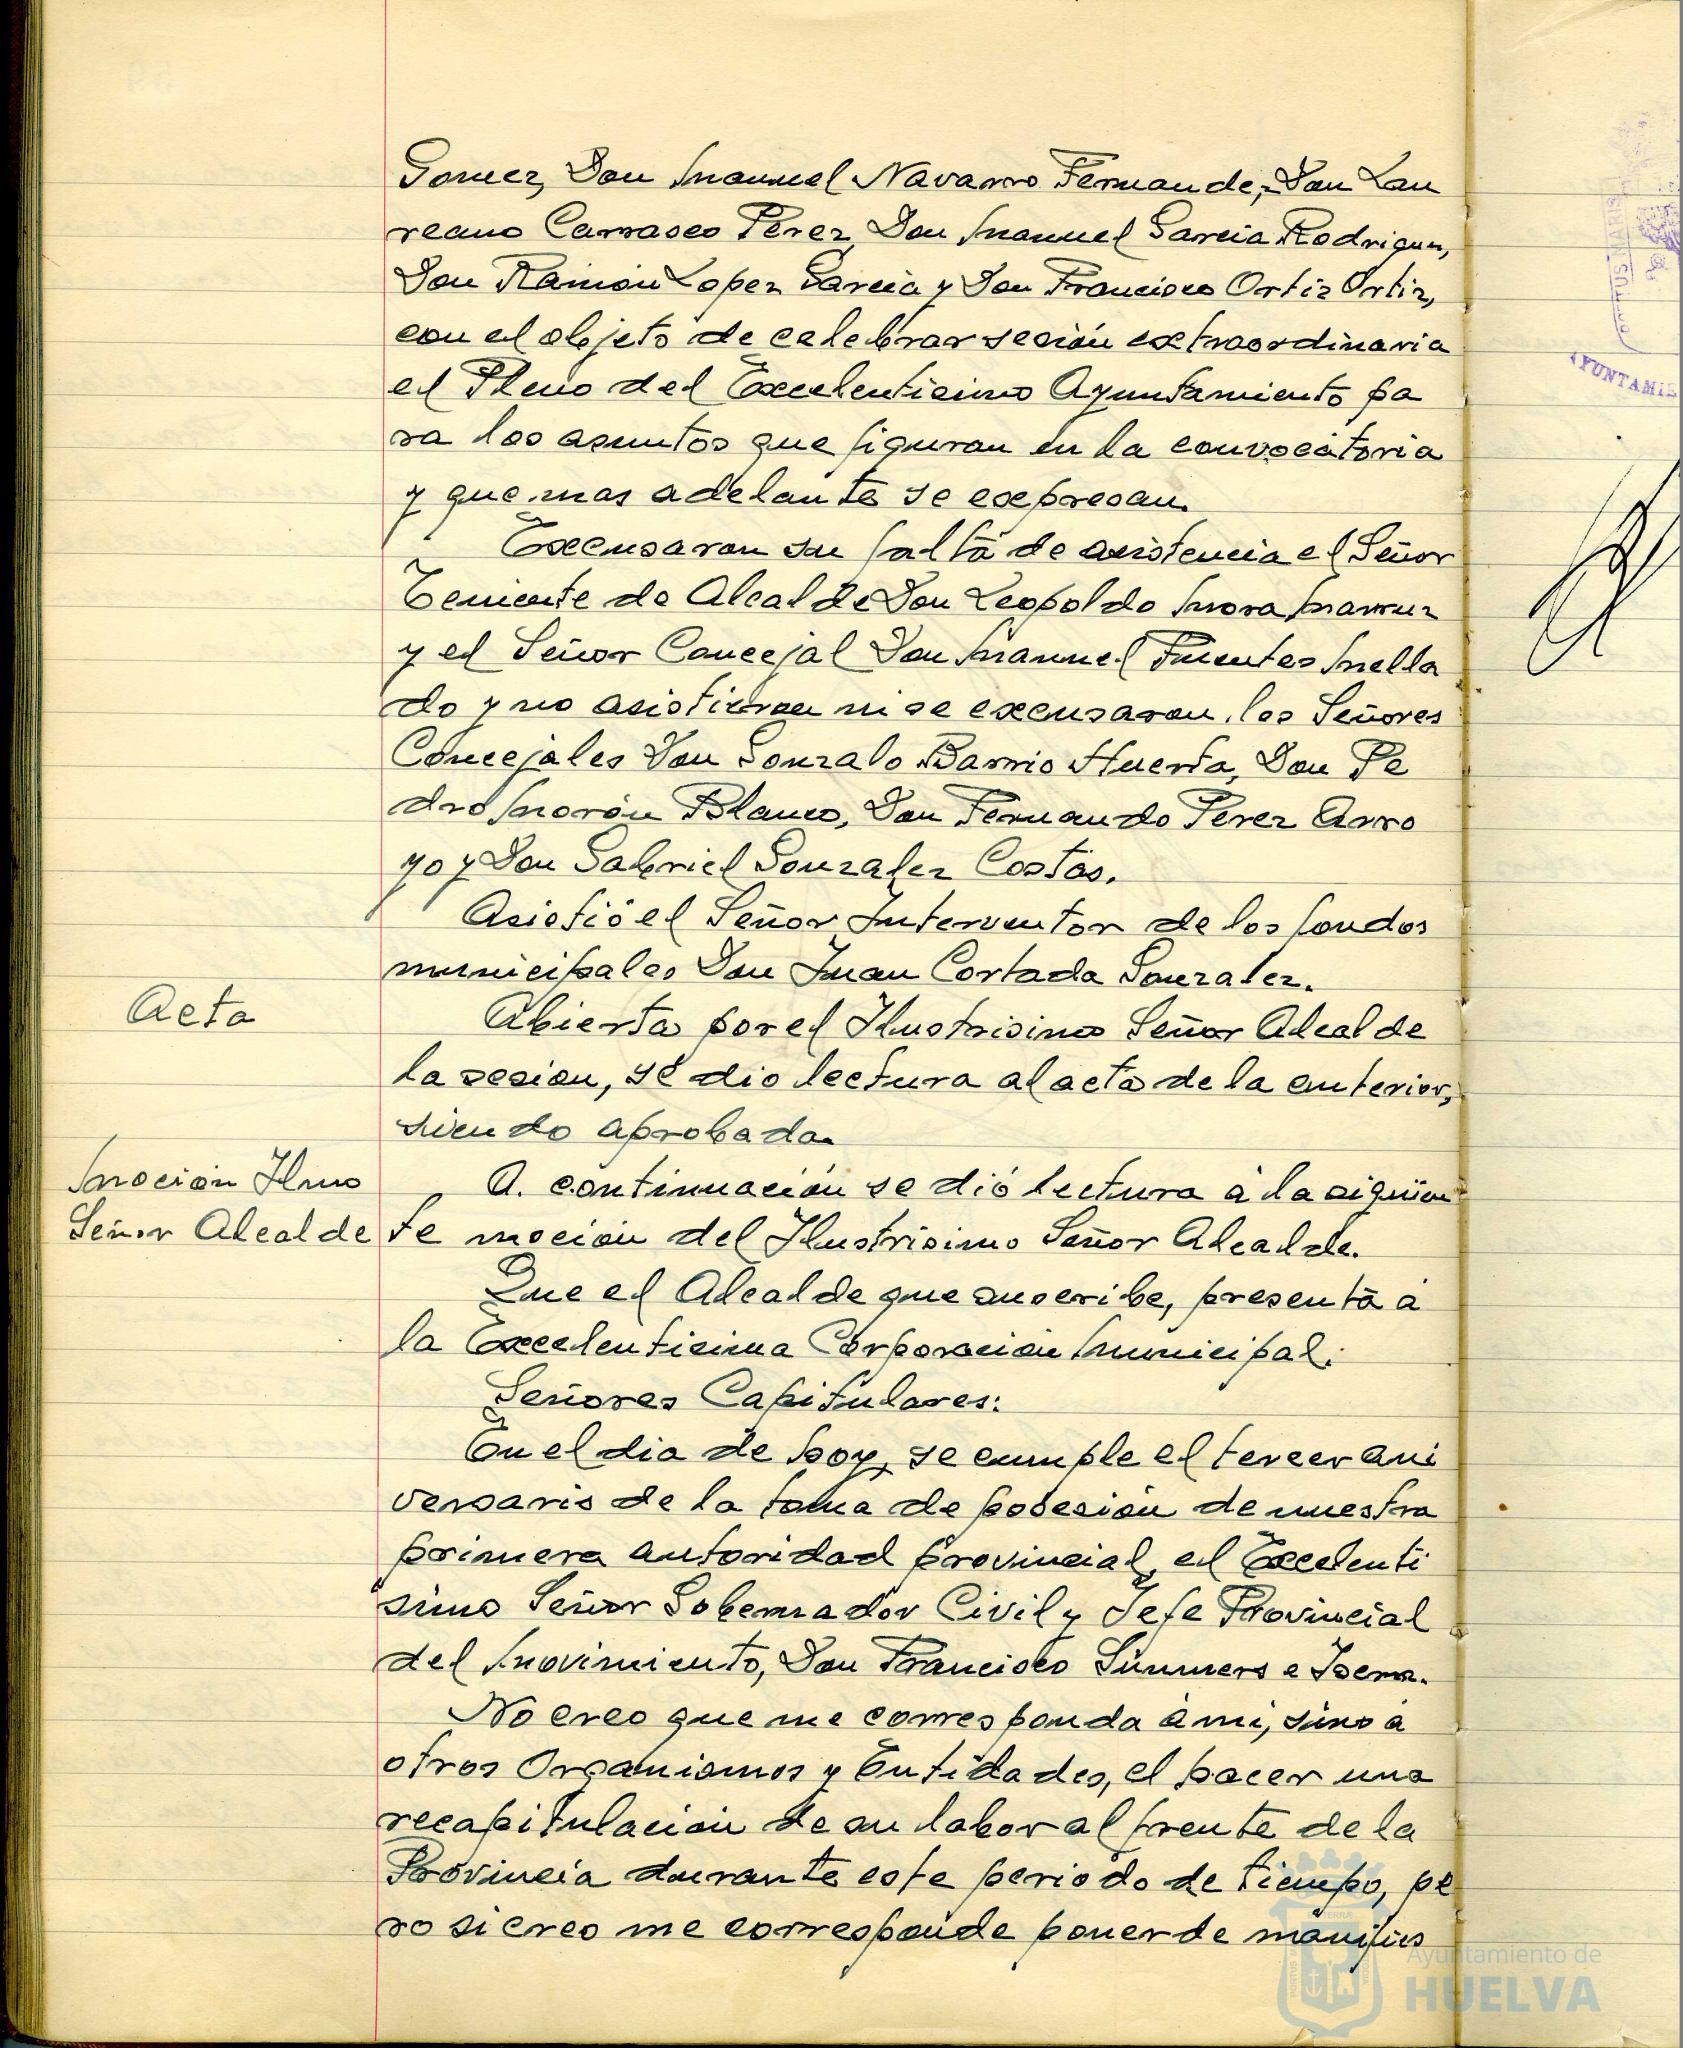 Gomez, Don Manuel Navarro Fernandez, Don Lau
reano Carrasco Perez, Don Manuel Garcia Rodriguez,
Don Ramón Lopez Garcia y Don Francisco Ortiz Ortiz,
con el objeto de celebrar sesión extraordinaria
el Pleno del Excelentisimo Ayuntamiento pa
ra los asuntos que figuran en la convocatoria
y que mas adelante se expresan.
Excusaron su falta de asistencia el Señor
Teniente de Alcalde Don Leopoldo Mora
y el Señor Concejal Don Manuel Fuentes Mella
do y no asistieron ni se excusaron los Señores
Concejales Don Gonzalo Barrio Huerta, Don Pe
dro Morón Blanco, Don Fernando Perez Arro
yo y Don Gabriel Gonzalez Costas.
Asistió el Señor Interventor de los fondos
municipales Don Juan Cortada Gonzalez.
Acta
Abierta por el Ilustrisimo Señor Alcalde
la sesion, se dio lectura al acta de la anterior,
siendo aprobada.
Moción Ilmo
Señor Alcalde
A. continuación se dió lectura á la siguien
te moción del Ilustrisimo Señor Alcalde.
Que el Alcalde que suscribe, presenta á
la Excelentisima Corporación Municipal.
Señores Capitulares:
En el dia de hoy, se cumple el tercer ani
versario de la toma de posesión de nuestra
primera autoridad provincial, el Excelenti
simo Señor Gobernador Civil y Jefe Provincial
del Movimiento, Don Francisco Summers e Isern.
No creo que me corresponda á mi, sino á
otros Organismos y Entidades, el hacer una
recapitulación de su labor al frente de la
Provincia durante este periodo de tiempo, pe
ro si creo me corresponde poner de manifies
AYUNTAMIE
Ayuntamiento de
HUELVA